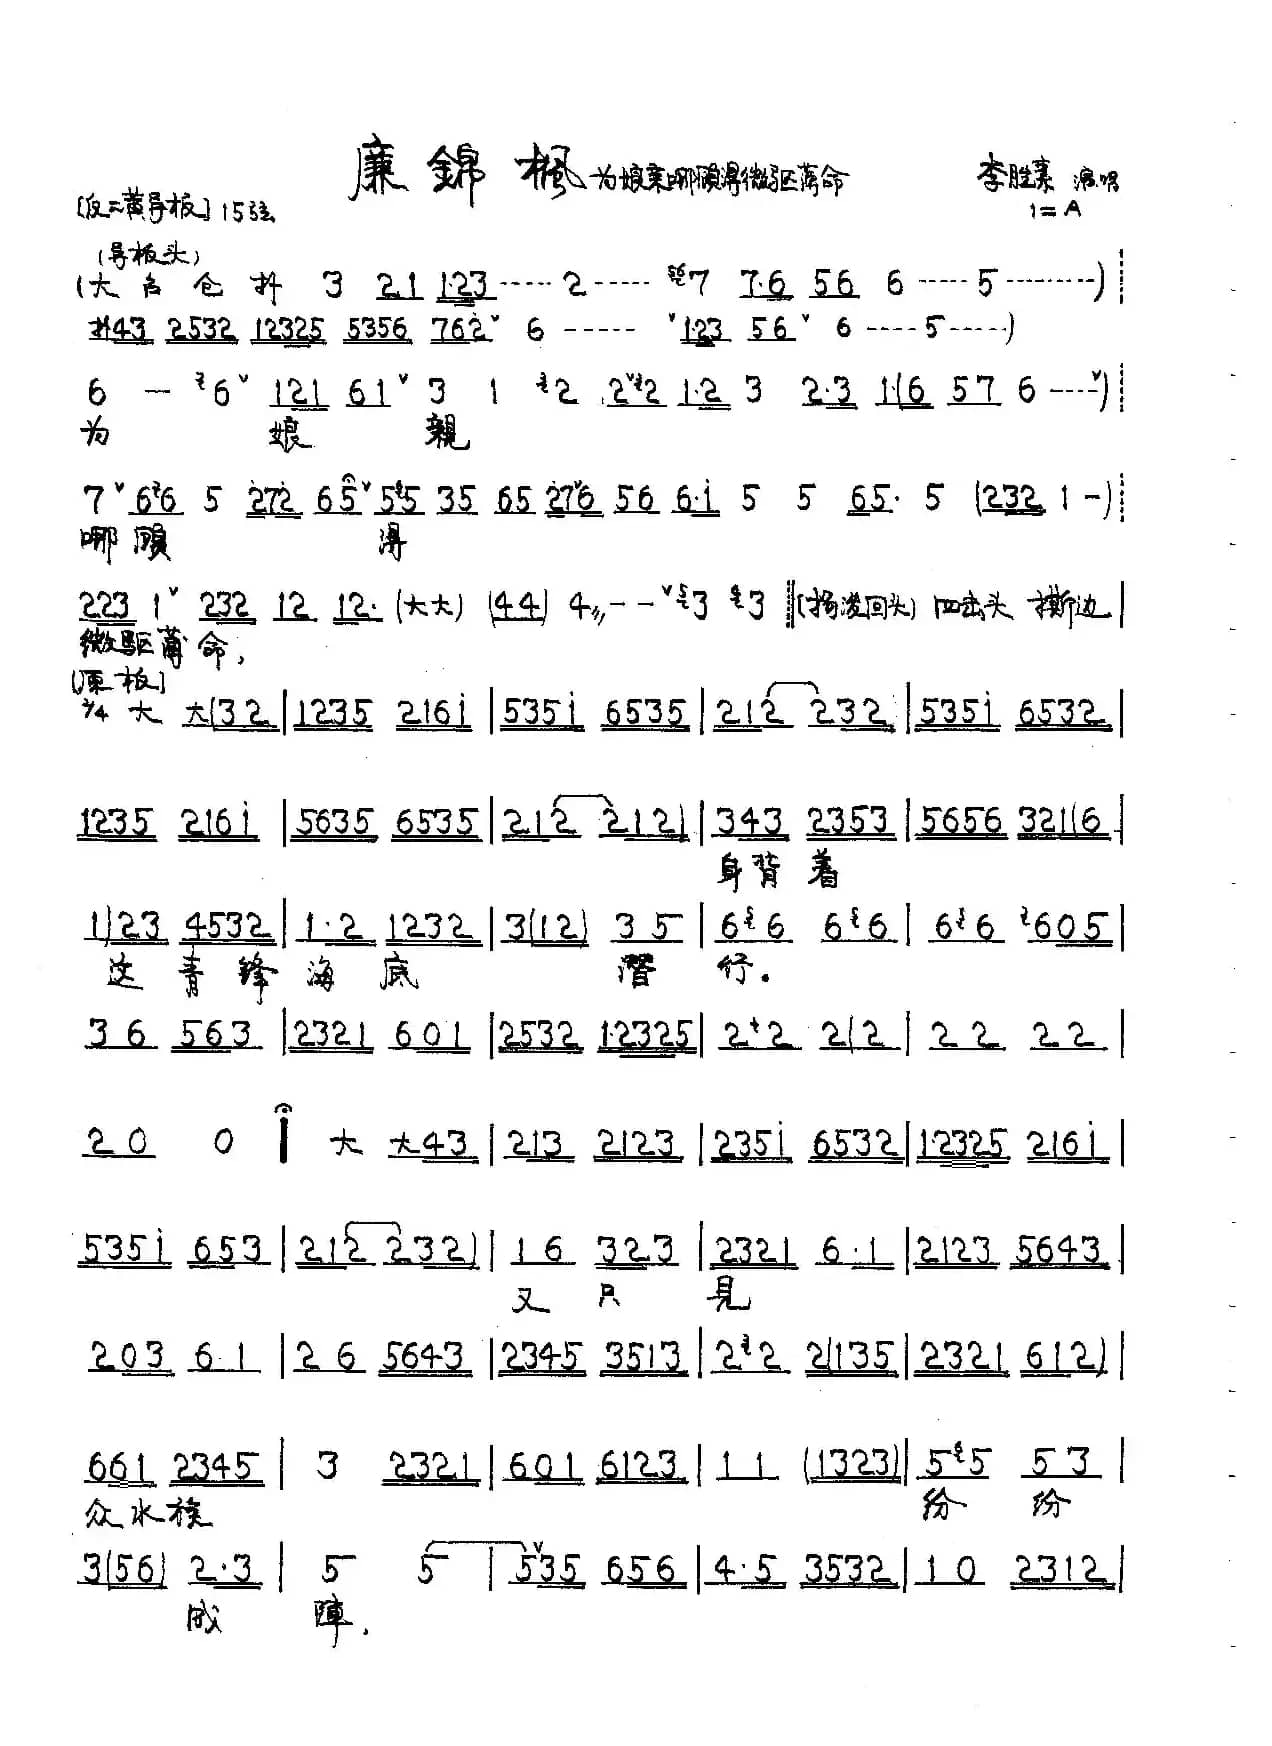 廉錦楓 为娘亲哪顾得微驱薄命 李胜素 演唱
[反二黄导板] 15弦 1=A
(导板头)
(大 台 仓 扑 3 21 1·23 ······ 2 ······ 7 7·6 56 6 ······ 5 ·········)
扑43 2532 12325 5356 762 ˅ 6 ······ ˅123 56 ˅ 6 ···· 5 ·····)
6 — 6 ˅ 121 61 ˅ 3 1 2 2˅2 1·2 3 2·3 1·(6 57 6 ····˅)
为 娘 親
7 ˅ 66 5 272 65 ˅ 55 35 65 276 56 6·i 5 5 65· 5 (232 1 -)
哪顾 得
223 1 ˅ 232 12 12· (大大) (44) 4 -- ˅3 3 (扬浚回头) 四击头 撕边 |
微驱薄命,
[原板]
2/4 大 大(32 | 1235 216i | 535i 6535 | 212 232 | 535i 6532 |
1235 216i | 5635 6535 | 212 212) | 343 2353 | 5656 321(6 |
身背着
1)23 4532 | 1·2 1232 | 3(12) 35 | 66 66 | 66 605 |
这青锋海底 潛 行。
36 563 | 2321 601 | 2532 1·2325 | 22 2(2 | 22 22 |
20 0 | 大 大43 | 213 2123 | 235i 6532 | 1·2325 216i |
535i 653 | 212 232) | 16 323 | 2321 6·1 | 2123 5643 |
又 只 見
203 61 | 26 5643 | 2345 3513 | 22 2(135 | 2321 612) |
661 2345 | 3 2321 | 601 6123 | 11 (1323) | 55 53 |
众水族 纷 纷
3(56) 2·3 | 5 5 | ˅535 656 | 4·5 3532 | 10 2312 |
成 陣,